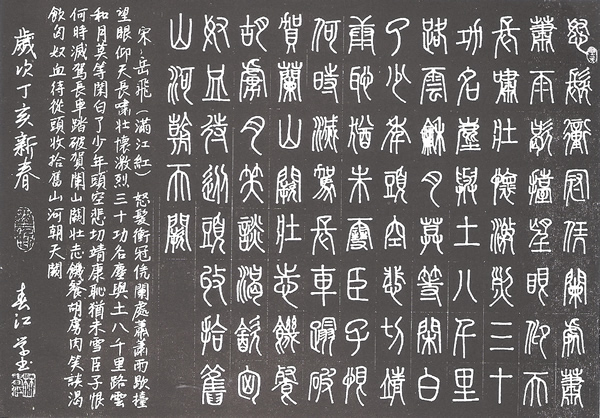 怒髮衝冠凭闌處蕭
蕭雨歇擡望眼仰天
長嘯壯懷激烈三十
功名塵與土八千里
路雲和月莫等閑白
了少年頭空悲切靖
康恥猶未雪臣子恨
何時滅駕長車踏破
賀蘭山闕壯志饑餐
胡虜肉笑談渴飲匈
奴血待從頭收拾舊
山河朝天闕
宋·岳飛《滿江紅》 怒髮衝冠凭闌處蕭蕭雨歇擡
望眼仰天長嘯壯懷激烈三十功名塵與土八千里路雲
和月莫等閑白了少年頭空悲切靖康恥猶未雪臣子恨
何時滅駕長車踏破賀蘭山闕壯志饑餐胡虜肉笑談渴
飲匈奴血待從頭收拾舊山河朝天闕
歲次丁亥新春
春江